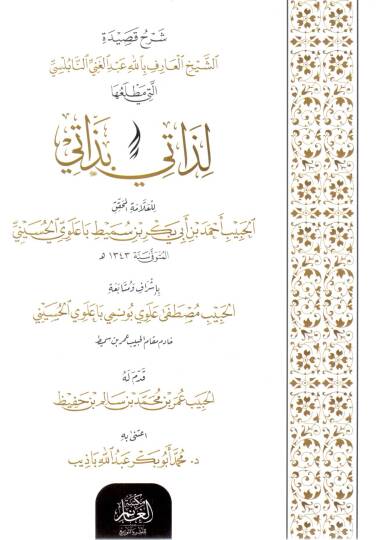 شرح قصيدة
الشيخ العارف بالله عبد الغني النابلسي
التي مطلعها
لذاتي بذاتي
للعلامة المحقق
الحبيب أحمد بن أبي بكر بن سميط باعلوي الحسيني
المتوفى سنة ١٣٤٣ هـ
بإشراف ومتابعة
الحبيب مصطفى علوي بونمي باعلوي الحسيني
خادم مقام الحبيب عمر بن سميط
قدم له
الحبيب عمر بن محمد بن سالم بن حفيظ
اعتنى به
د. محمد أبو بكر عبد الله باذيب
مكتبة
الغانم
للنشر والتوزيع